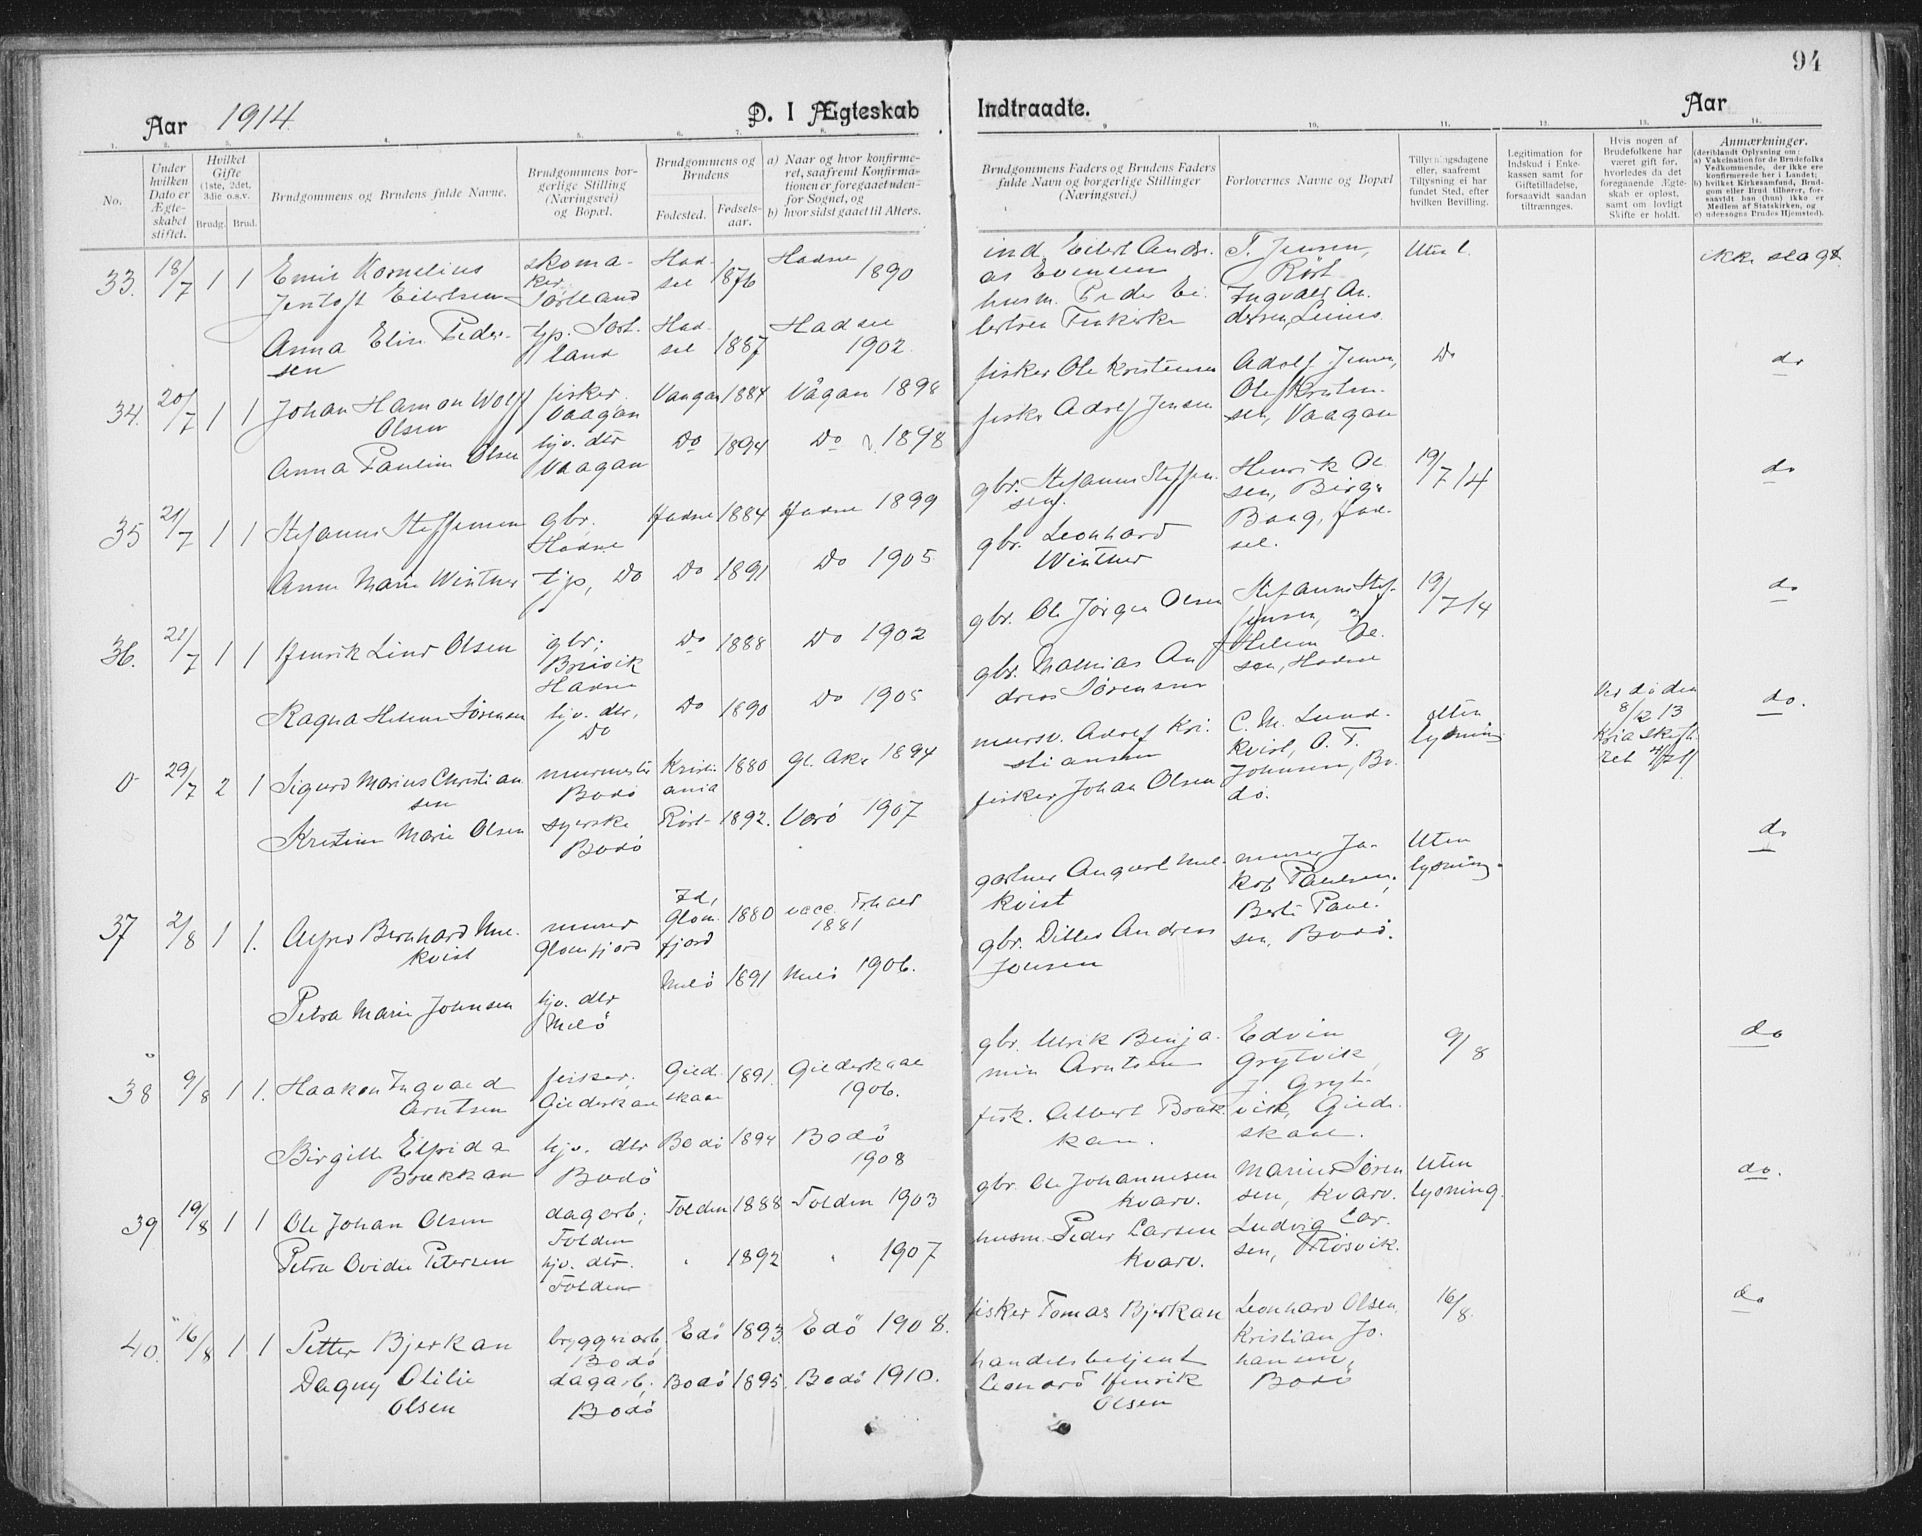 94
Aar 1914.
D. I Ægteskab
Indtraadte.
Aar
1. 2. 3. 4. 5. 6. 7. 8. 9. 10. 11. 12. 13. 14.
No.
Under hvilken Dato er Ægteskabet stiftet.
Hvilket Gifte (1ste, 2det, 3die o.s.v.
Brudg. Brud.
Brudgommens og Brudens fulde Navne.
Brudgommens borgerlige Stilling (Næringsvei) og Bopæl.
Brudgommens og Brudens
Fødested. Fødselsaar.
a) Naar og hvor konfirmeret, saafremt Konfirmationen er foregaaet udenfor Sognet, og
b) hvor sidst gaaet til Alters.
Brudgommens Faders og Brudens Faders fulde Navn og borgerlige Stillinger (Næringsvei.)
Forlovernes Navne og Bopæl
Tillysningsdagene eller, saafremt Tillysning ei har fundet Sted, efter hvilken Bevilling.
Legitimation for Indskud i Enkekassen samt for Giftetilladelse, forsaavidt saadan tiltrænges.
Hvis nogen af Brudefolkene har været gift før, hvorledes da det foregaaende Ægteskab er opløst, samt om lovligt Skifte er holdt.
Anmærkninger.
(deriblandt Oplysning om:
a) Vakcination for de Brudefolks Vedkommende, der ikke ere konfirmerede her i Landet;
b) hvilket Kirkesamfund, Brudgom eller Brud tilhører, forsaavidt han (hun) ikke er Medlem af Statskirken, og
c) udensogns Brudes Hjemsted).
33. 18/7 1 1 Emil Kornelius
Jentoft Eilertsen
skomaker
Sortland
Hadsel 1876 Hadsel 1890
ind. Eilert Andreas Evensen
T. Jensen,
Röst
ikke slægt
Anna Elise Pedersen
tjp. Sortland
Hadsel 1887 Hadsel 1902.
husm. Peder Eilertsen
34. 20/7 1 1 Johan Hamon Wolf
Olsen
fisker
Vaagan
Vaagan 1884 Vågan 1898
fisker Ole Kristensen
Adolf Jensen,
Do
do
Anna Pauline Olsen
hjv. dtr
Vaagan
Do 1894 Do 1898
fisker Adolf Jensen
Ole Kristensen, Vaagan
35 21/7 1 1 Stefanus Steffensen
gbr.
Hadsel
Hadsel 1884 Hadsel 1899
gbr. Stefanus Steffensen
Henrik Olsen, Birger
Baag, Hadsel.
19/7 14
do
Anne Marie Winther tjp, Do
Do 1891 Do 1905
gbr. Leonhard
Winther
36. 21/7 1 1 Henrik Lind Olsen
gbr;
Breivik
Hadsel
Do 1888 Do 1902
gbr. Ole Jørgen Olsen
19/7 14
do
Ragna Helene Sørensen
hjv. dtr,
Do
Do 1890 Do 1905
gbr. Mathias Andreas Sørensen
0 29/7 2 1 Sigurd Marius Christiansen
murmester
Bodö
Kristiania 1880 Gl. Aker 1894
mursv. Adolf Kristiansen
C. M. Lundkvist, O. T.
Johnsen, Bodö.
uten
lysning
Ved döden
8/12 13
do.
Kristine Marie Olsen
syerske
Bodö
Röst 1892. Værö 1907
fisker Johan Olsen
37 2/8 1 1. Alfred Bernhard Mulkvist
murer
Glomfjord
Glomfjord 1880 vacc.
1881
gartner August Mulkvist
murer Jakob Paulsen,
Uten
lysning.
do
Petra Marie Johnsen
hjv. dtr
Melö
Melö 1891 Melö 1906.
gbr. Ditlev Andreas
Jonsen
Bodö.
38 9/8 1 1. Haakon Ingvald
Arntsen
fisker;
Gildeskaal
Gildskaal 1891. Gildeskaal
1906.
gbr. Ulrik Benjamin Arntsen
Edvin
Grytvik
J. Grytvik, Gildskaal.
9/8
do
Birgitte Elfrida
Brækkan
hjv. dtr
Bodö
Bodö 1894 Bodö
1908
fisk. Albert Brækkan.
39 19/8 1 1 Ole Johan Olsen
dagarb;
Folden
Folden 1888 Folden 1903
gbr. Ole Johannesen
Kvarv.
Marius Sörensen, Kvarv.
Uten
lysning.
do.
Petra Ovidie Petersen
hjv. dtr.
Folden
" 1892 " 1907
husm. Peder Larsen
Kvarv.
Ludvig Larsen, Rösvik.
40. 16/8 1 1 Petter Bjerkan
bryggeriarb,
Bodö
Edö 1893 Edö 1908.
fisker Tomas Bjerkan
Leonhard Olsen,
Kristian Johansen,
Bodö
16/8.
do
Dagny Olilie
Olsen
dagarb;
Bodö
Bodö 1895. Bodö 1910.
handelsbetjent
Leonard Henrik
Olsen